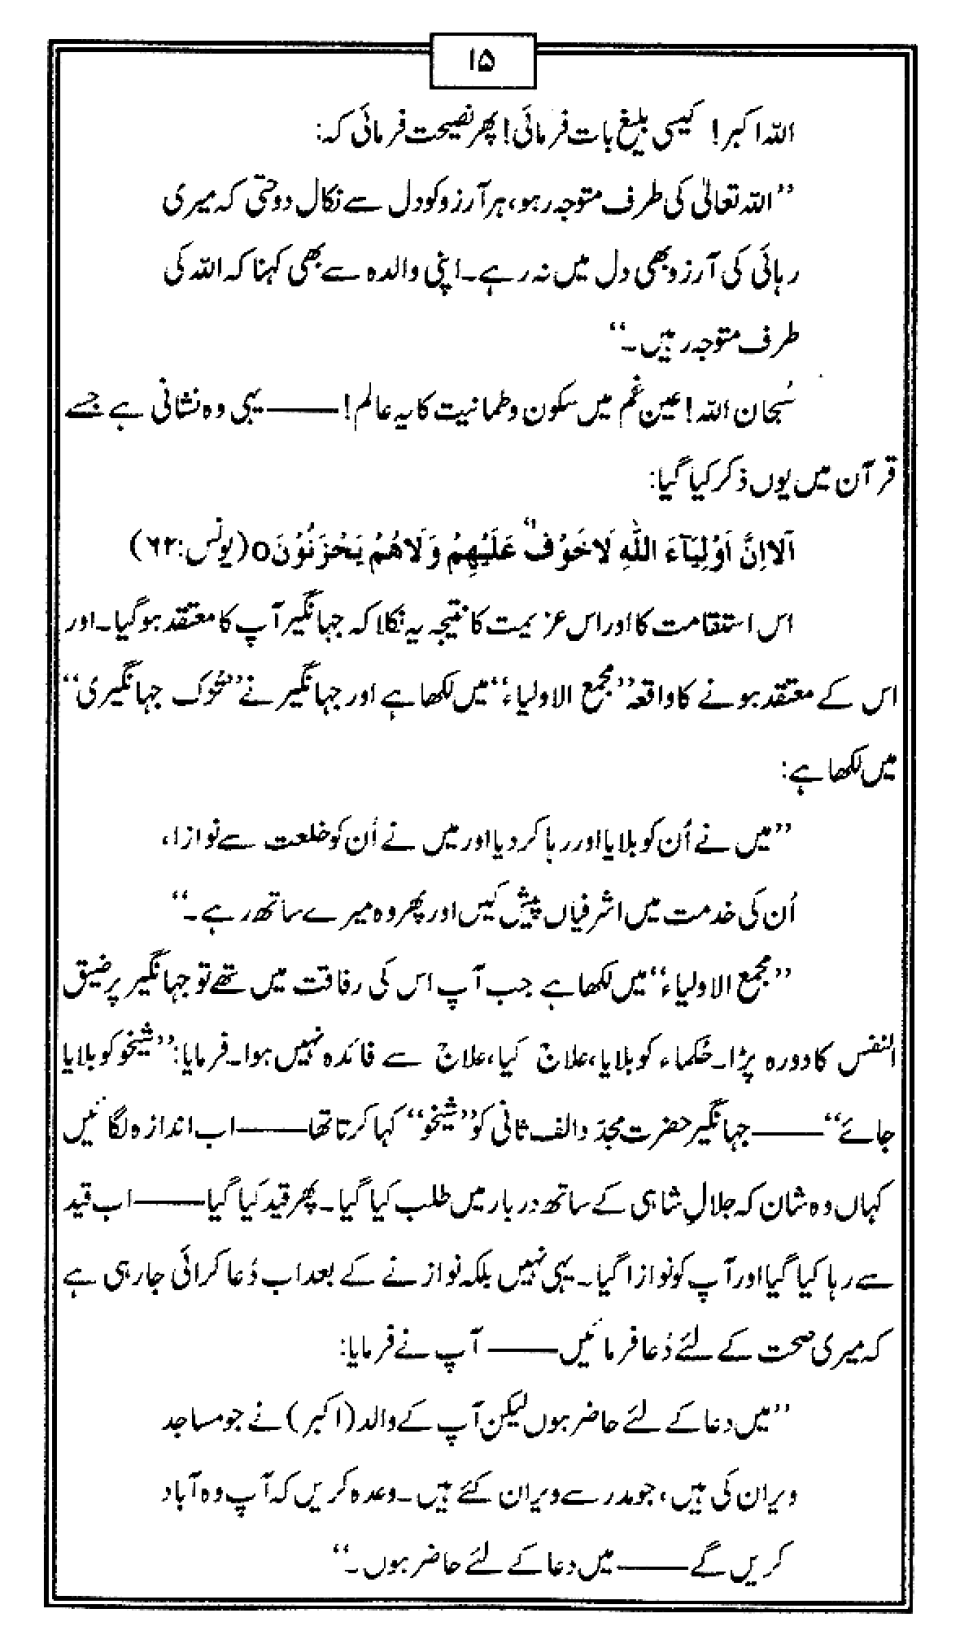 ۱۵
اللہ اکبر! کیسی بلیغ بات فرمائی! پھر نصیحت فرمائی کہ:
”اللہ تعالیٰ کی طرف متوجہ رہو، ہر آرزو کو دل سے نکال دو حتی کہ میری
رہائی کی آرزو بھی دل میں نہ رہے۔ اپنی والدہ سے بھی کہنا کہ اللہ کی
طرف متوجہ رہیں۔“
سُبحان اللہ! عین غم میں سکون و طمانیت کا یہ عالم! —— یہی وہ نشانی ہے جسے
قرآن میں یوں ذکر کیا گیا:
اَلَا اِنَّ اَوْلِیَآءَ اللّٰہِ لَاخَوْفٌ عَلَیْہِمْ وَلَاہُمْ یَحْزَنُوْنَ o (یونس: ۶۲)
اس استقامت کا اور اس عزیمت کا نتیجہ یہ نکلا کہ جہانگیر آپ کا معتقد ہوگیا۔ اور
اس کے معتقد ہونے کا واقعہ ”مجمع الاولیاء“ میں لکھا ہے اور جہانگیر نے ”تُزک جہانگیری“
میں لکھا ہے:
”میں نے اُن کو بلایا اور رہا کر دیا اور میں نے اُن کو خلعت سے نوازا،
اُن کی خدمت میں اشرفیاں پیش کیں اور پھر وہ میرے ساتھ رہے۔“
”مجمع الاولیاء“ میں لکھا ہے جب آپ اس کی رفاقت میں تھے تو جہانگیر پر ضیق
النفس کا دورہ پڑا۔ حُکماء کو بلایا، علاج کیا، علاج سے فائدہ نہیں ہوا۔ فرمایا: ”شیخو کو بلایا
جائے“ —— جہانگیر حضرت مجدّد الف ثانی کو ”شیخو“ کہا کرتا تھا —— اب اندازہ لگائیں
کہاں وہ شان کہ جلالِ شاہی کے ساتھ دربار میں طلب کیا گیا۔ پھر قید کیا گیا —— اب قید
سے رہا کیا گیا اور آپ کو نوازا گیا۔ یہی نہیں بلکہ نوازنے کے بعد اب دُعا کرائی جا رہی ہے
کہ میری صحت کے لئے دُعا فرمائیں —— آپ نے فرمایا:
”میں دعا کے لئے حاضر ہوں لیکن آپ کے والد (اکبر) نے جو مساجد
ویران کی ہیں، جو مدرسے ویران کئے ہیں۔ وعدہ کریں کہ آپ وہ آباد
کریں گے —— میں دعا کے لئے حاضر ہوں۔“